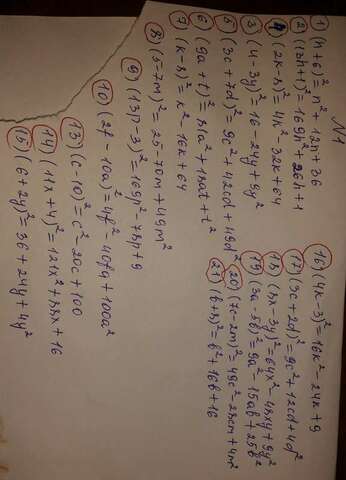 №1
1) (n+6)²=n²+12n+36
2) (13h+1)²=169h²+26h+1
4) (2k-8)²=4k²-32k+64
3) (4-3y)²=16-24y+9y²
5) (3c+7d)²=9c²+42cd+49d²
6) (9a+t)²=81a²+18at+t²
7) (k-8)²=k²-16k+64
8) (5-7m)²=25-70m+49m²
9) (13p-3)²=169p²-78p+9
10) (2f-10a)²=4f²-40fa+100a²
13) (c-10)²=c²-20c+100
14) (11x+4)²=121x²+88x+16
15) (6+2y)²=36+24y+4y²
16) (4k-3)²=16k²-24k+9
17) (3c+2d)²=9c²+12cd+4d²
18) (8x-3y)²=64x²-48xy+9y²
19) (3a-5b)²=9a²-15ab+25b²
20) (7c-2m)²=49c²-28cm+4m²
21) (b+8)²=b²+16b+16